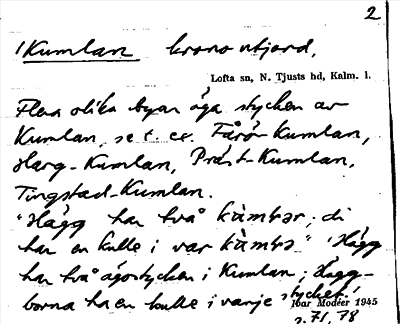 2
/Kumlan krono utjord,
Lofta sn, N. Tjusts hd, Kalm. l.
Flera olika byar äga stycken av
Kumlan, se t. ex. Fårö-Kumlan,
Harg-Kumlan, Präst-Kumlan,
Tingstad-Kumlan.
"Hägg har två kàmbər; di
har en kulle i var kàmbə" 'Hägg
har två ägostycken i Kumlan; Hägg-
borna ha en kulle i varje stycket.'
Ivar Modéer 1945
s. 71, 78